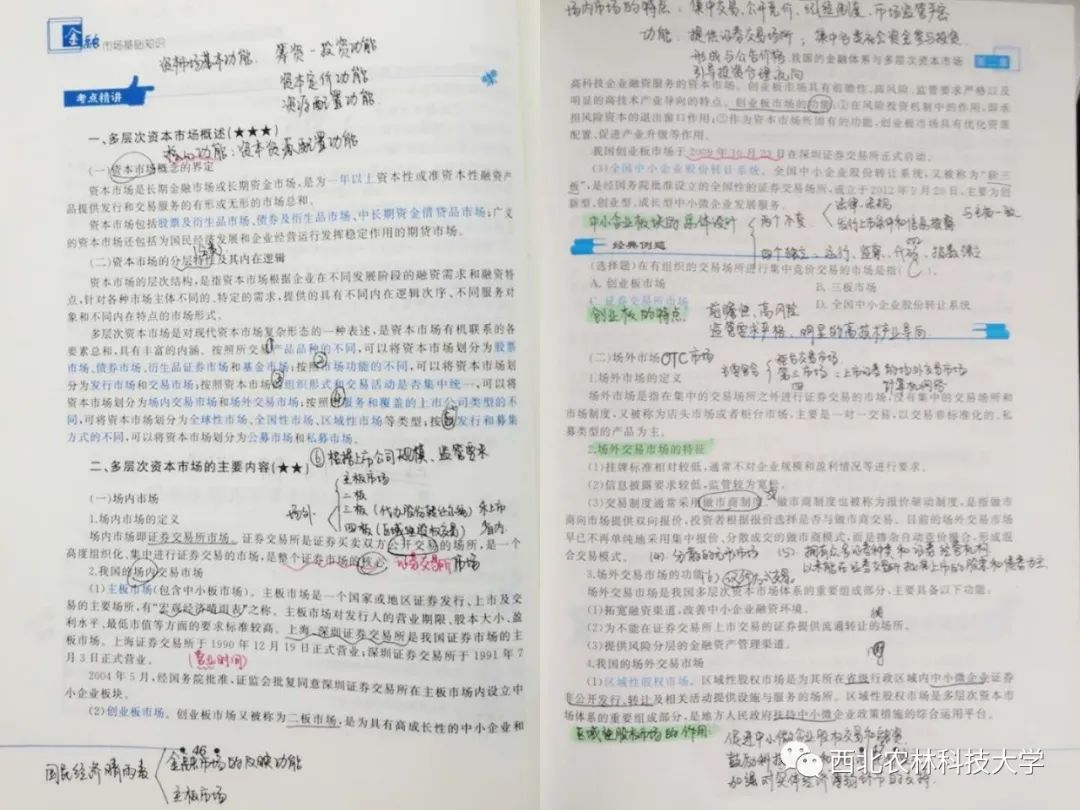 金融市场基础知识
资本市场基本功能 筹资-投资功能
资本定价功能
资源配置功能
考点精讲
一、多层次资本市场概述(★★★)
核心功能:资本资源配置功能
(一)资本市场概念的界定
资本市场是长期金融市场或长期资金市场,是为一年以上资本性或准资本性融资产
品提供发行和交易服务的有形或无形的市场总和。
资本市场包括股票及衍生品市场、债券及衍生品市场、中长期资金借贷品市场;广义
的资本市场还包括为国民经济发展和企业经营运行发挥稳定作用的期货市场。
(二)资本市场的分层特性及其内在逻辑
资本市场的层次结构,是指资本市场根据企业在不同发展阶段的融资需求和融资特
点,针对各种市场主体不同的、特定的需求,提供的具有不同内在逻辑次序、不同服务对
象和不同内在特点的市场形式。
多层次资本市场是对现代资本市场复杂形态的一种表述,是资本市场有机联系的各
要素总和,具有丰富的内涵。按照所交易产品品种的不同,可以将资本市场划分为股票
市场、债券市场、衍生品证券市场和基金市场;按照市场功能的不同,可以将资本市场划
分为发行市场和交易市场;按照资本市场组织形式和交易活动是否集中统一,可以将
资本市场划分为场内交易市场和场外交易市场;按照服务和覆盖的上市公司类型的不
同,可将资本市场划分为全球性市场、全国性市场、区域性市场等类型;按发行和募集
方式的不同,可以将资本市场划分为公募市场和私募市场。
⑥根据上市公司规模、监管要求
二、多层次资本市场的主要内容(★★)
主板市场
二板
三板(代办股份转让系统)
四板(区域性股权交易)
(一)场内市场
1.场内市场的定义
场内市场即证券交易所市场。证券交易所是证券买卖双方公开交易的场所,是一个
高度组织化、集中进行证券交易的市场,是整个证券市场的核心。
2.我国的场内交易市场
(1)主板市场(包含中小板市场)。主板市场是一个国家或地区证券发行、上市及交
易的主要场所,有“宏观经济晴雨表”之称。主板市场对发行人的营业期限、股本大小、盈
利水平、最低市值等方面的要求标准较高。上海、深圳证券交易所是我国证券市场的主
板市场。上海证券交易所于1990年12月19日正式营业;深圳证券交易所于1991年7
月3日正式营业。
(营业时间)
2004年5月,经国务院批准,证监会批复同意深圳证券交易所在主板市场内设立中
小企业板块。
(2)创业板市场。创业板市场又被称为二板市场,是为具有高成长性的中小企业和
46
国民经济晴雨表
金融市场的反映功能
主板市场
场内市场的特点:集中交易、公开竞价、
功能:提供证券交易场所;
形成与公告价格
引导投资合理流向
我国的金融体系与多层次资本市场 第二章
高科技企业融资服务的资本市场。创业板市场具有前瞻性、高风险、监管要求严格以及
明显的高技术产业导向的特点。创业板市场的功能:①在风险投资机制中的作用,即承
担风险资本的退出窗口作用;②作为资本市场所固有的功能,创业板市场具有优化资源
配置、促进产业升级等作用。
我国创业板市场于2009年10月23日在深圳证券交易所正式启动。
(3)全国中小企业股份转让系统。全国中小企业股份转让系统,又被称为“新三
板”,是经国务院批准设立的全国性的证券交易场所,成立于2012年9月20日,主要为创
新型、创业型、成长型中小微企业发展服务。
中小企业板块的总体设计
两个不变
四个独立:运行、监察、代码、指数独立
经典例题
(选择题)在有组织的交易场所进行集中竞价交易的市场是指( )。
A. 创业板市场 B. 三板市场
C. 证券交易所市场 D. 全国中小企业股份转让系统
创业板的特点 前瞻性、高风险
监管要求严格、明显的高技术产业导向
(二)场外市场 OTC市场
1.场外市场的定义
场外市场是指在集中的交易场所之外进行证券交易的市场,没有集中的交易场所和
市场制度,又被称为店头市场或者柜台市场,主要是一对一交易,以交易非标准化的、私
募类型的产品为主。
2.场外交易市场的特征
(1)挂牌标准相对较低,通常不对企业规模和盈利情况等进行要求。
(2)信息披露要求较低,监管较为宽松。
(3)交易制度通常采用做市商制度。做市商制度也被称为报价驱动制度,是指做市
商向市场提供双向报价,投资者根据报价选择是否与做市商交易。目前的场外交易市场
早已不再单纯地采用集中报价、分散成交的做市商模式,而是掺杂自动竞价撮合,形成混
合交易模式。
(4)分散的无形市场
3.场外交易市场的功能
场外交易市场是我国多层次资本市场体系的重要组成部分,主要具备以下功能:
(1)拓宽融资渠道,改善中小企业融资环境。
(2)为不能在证券交易所上市交易的证券提供流通转让的场所。
(3)提供风险分层的金融资产管理渠道。
4.我国的场外交易市场
(1)区域性股权市场。区域性股权市场是为其所在省级行政区域内中小微企业证券
非公开发行、转让及相关活动提供设施与服务的场所。区域性股权市场是多层次资本市
场体系的重要组成部分,是地方人民政府扶持中小微企业政策措施的综合运用平台。
区域性股权市场的作用:
西北农林科技大学